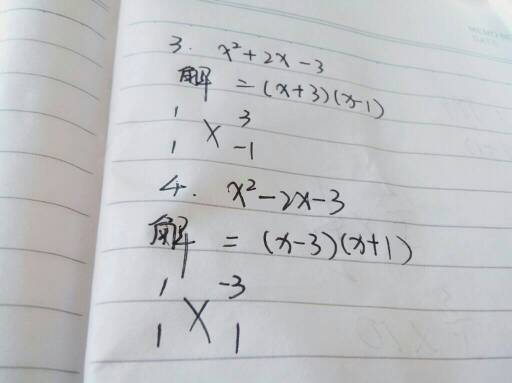 3. x²+2x-3
解 =(x+3)(x-1)
1 3
1 ╳ -1
4. x²-2x-3
解 =(x-3)(x+1)
1 -3
1 ╳ 1